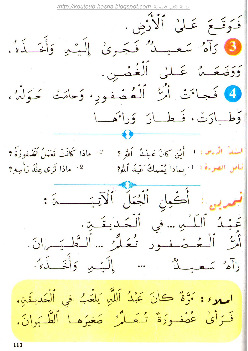 فَوَقَعَ عَلَى الْأَرْضِ.
3 رَآهُ سَعِيدٌ فَجَرَى إِلَيْهِ وَأَخَذَهُ.
وَوَضَعَهُ عَلَى الْغُصْنِ.
4 فَجَاءَتْ أُمُّ الْعُصْفُورِ. وَحَامَتْ حَوْلَهُ.
وَطَارَتْ. فَطَارَ وَرَاءَهَا
1 - أَيْنَ كَانَ عَبْدُ اللهِ؟ 2 - مَاذَا كَانَتْ تَفْعَلُ الْعُصْفُورَةُ؟
تَمْرِين: أُكْمِلُ الْجُمَلَ الْآتِيَةَ:
عَبْدُ اللهِ ... فِي الْحَدِيقَةِ.
أُمُّ الْعُصْفُورِ تُعَلِّمُ ... الطَّيَرَانَ.
رَآهُ سَعِيدٌ ... إِلَيْهِ وَأَخَذَهُ.
إملاء: مَرَّةً كَانَ عَبْدُ اللهِ يَلْعَبُ فِي الْحَدِيقَةِ.
فَرَأَى عُصْفُورَةً تُعَلِّمُ صَغِيرَهَا الطَّيَرَانَ.